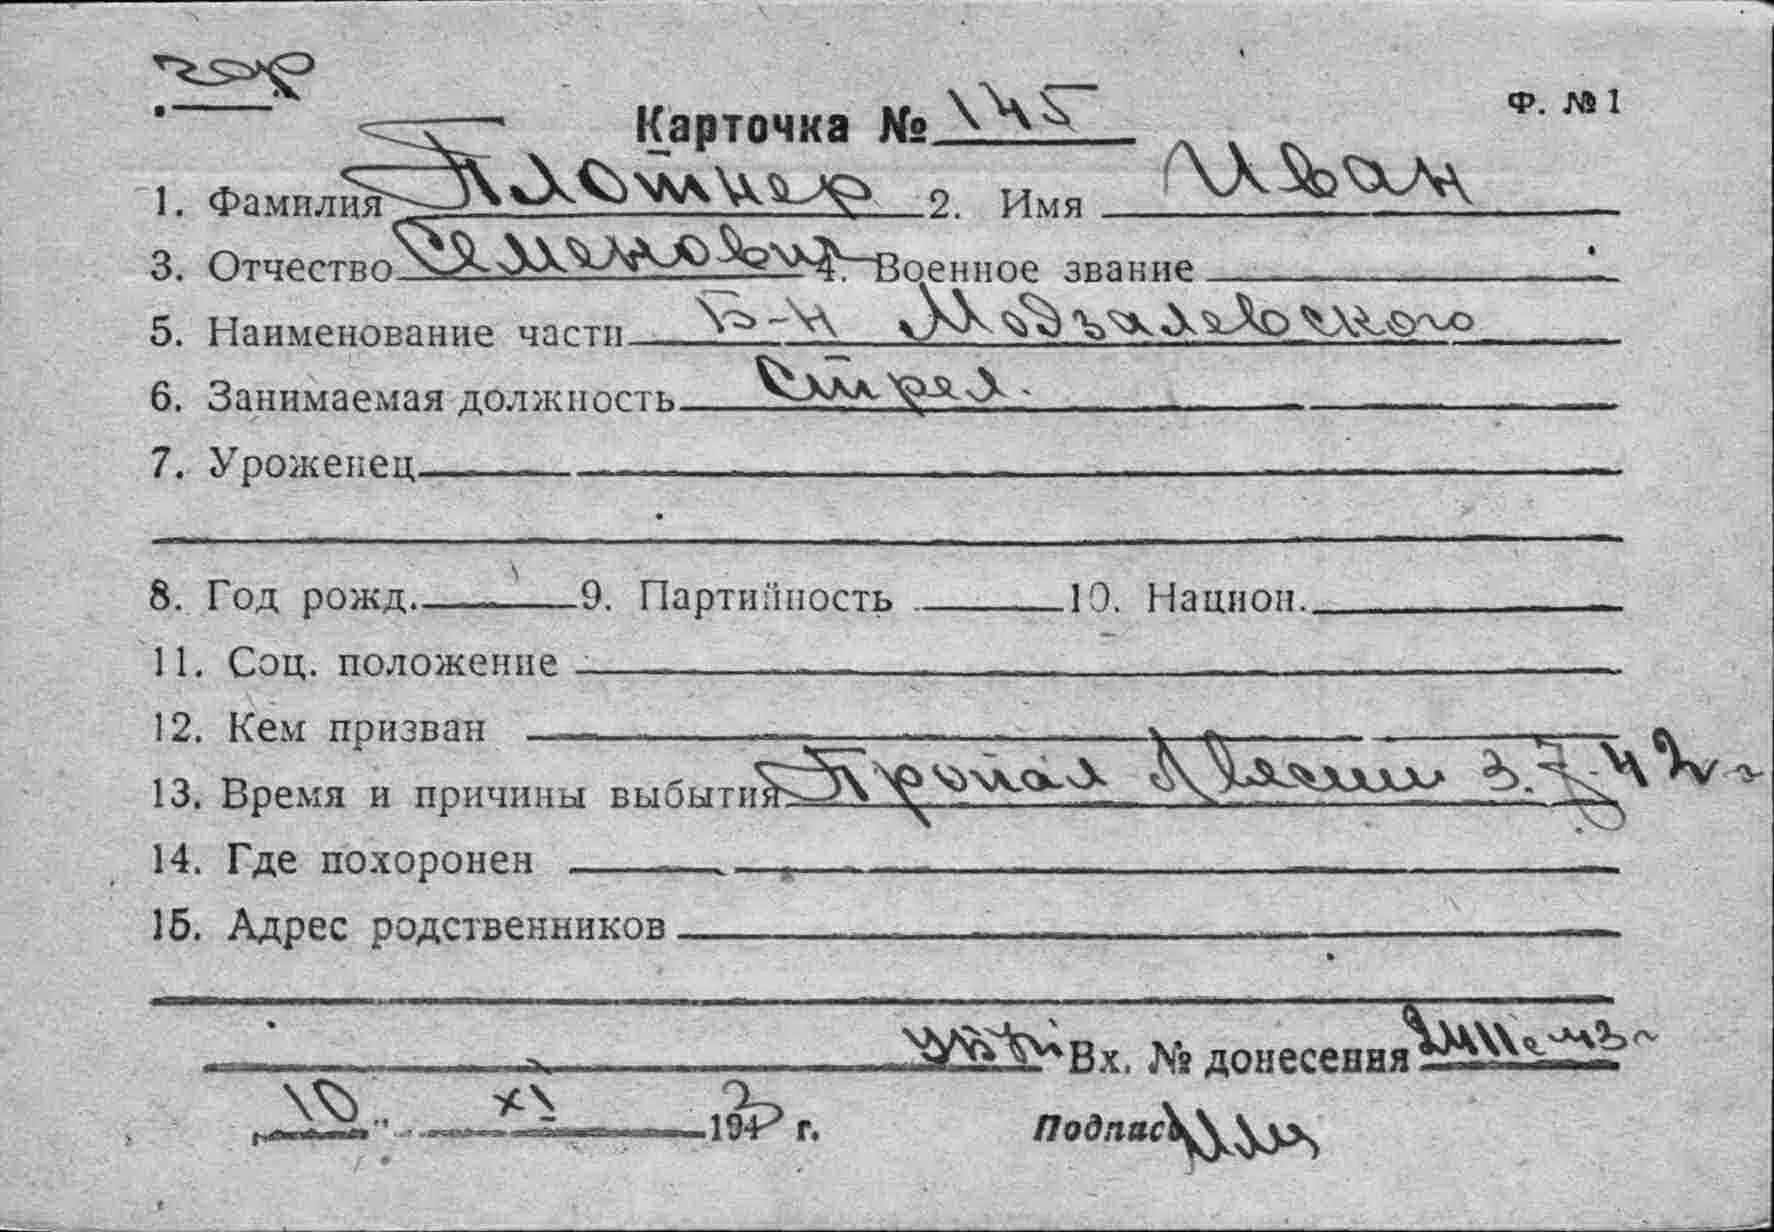 Ф. № 1
Карточка № 145
1. Фамилия Плотнер 2. Имя Иван
3. Отчество Семенович 4. Военное звание
5. Наименование части Б-н Модзалевского
6. Занимаемая должность Стрел.
7. Уроженец
8. Год рожд. 9. Партийность 10. Национ.
11. Соц. положение
12. Кем призван
13. Время и причины выбытия Пропал 3.7.42 г
14. Где похоронен
15. Адрес родственников
Вх. № донесения
10 XI 1943 г. Подпись